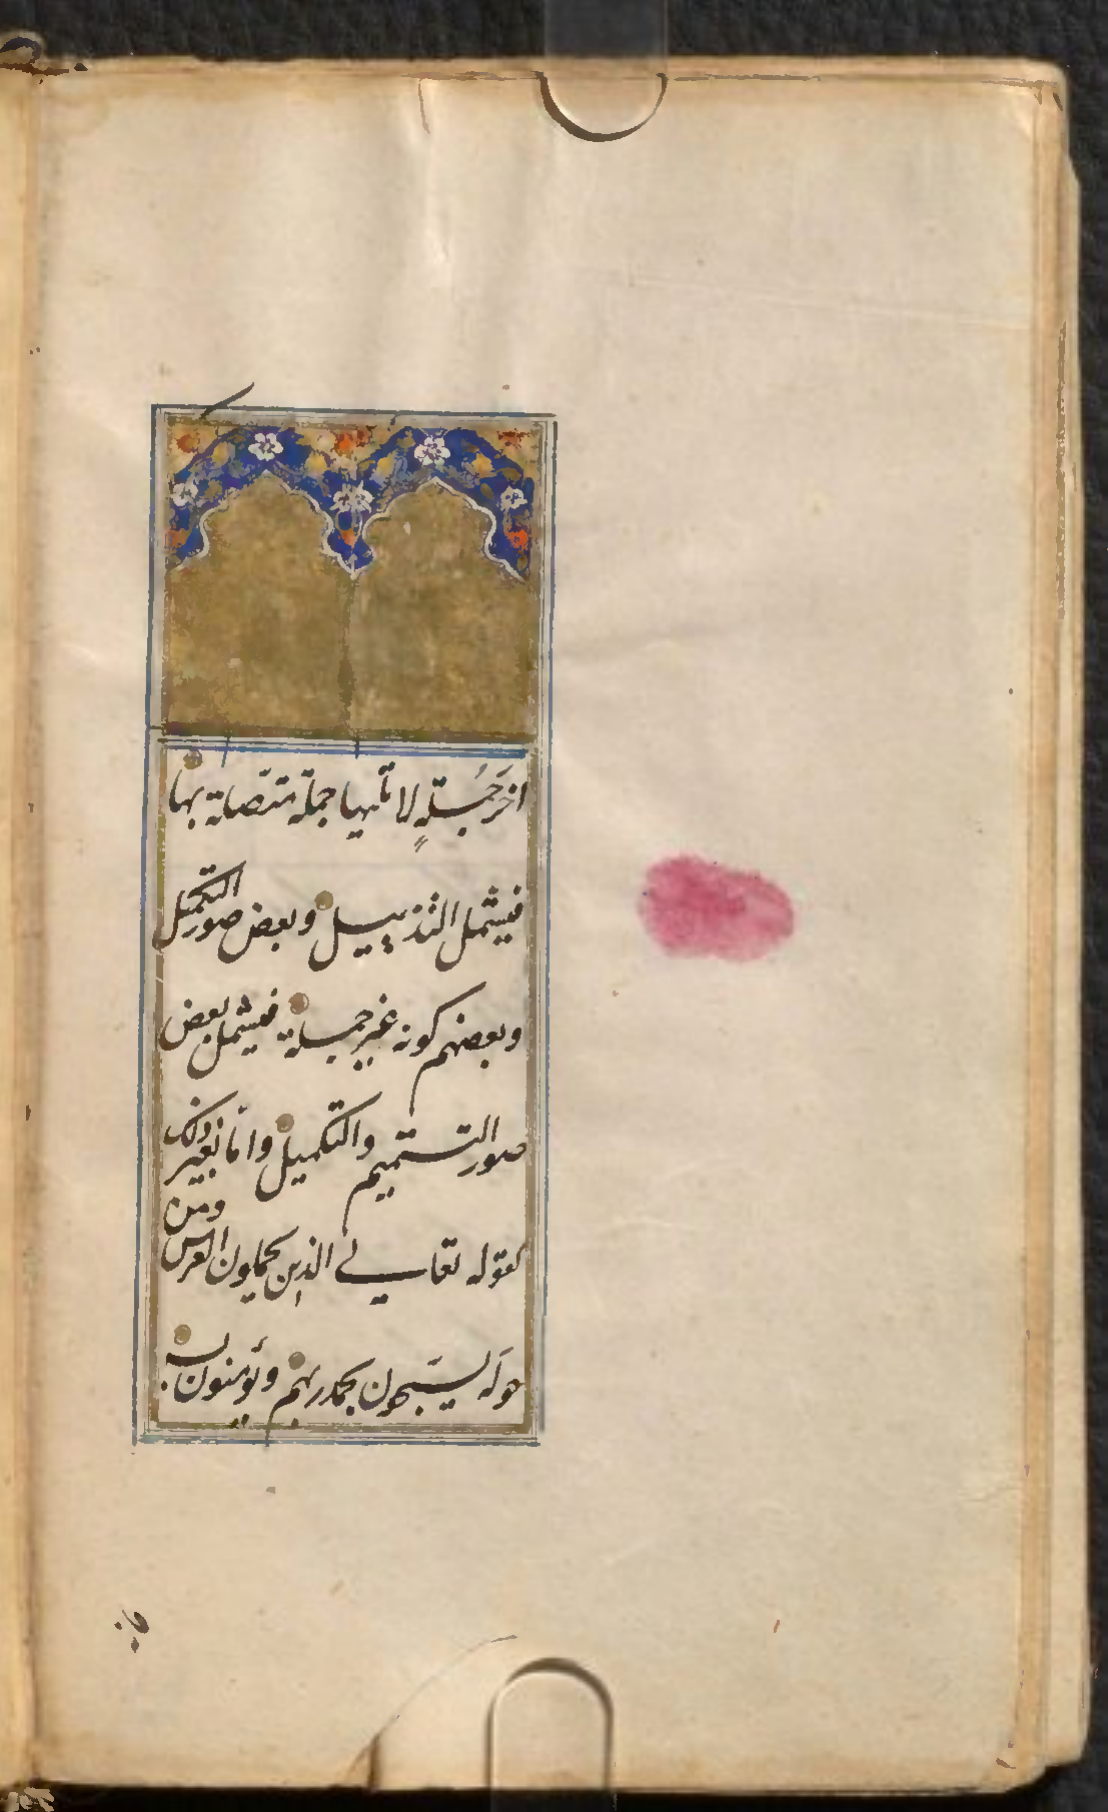 اخر جملةٍ لا تليها جملة متصلة بها
فيشمل التذييل وبعض صور التكميل
وبعضهم كونه غير جملة فيشمل بعض
صور التتميم والتكميل واما بغير ذلك
كقوله تعالى الذين يحملون العرش ومن
حوله يسبحون بحمد ربهم ويؤمنون به